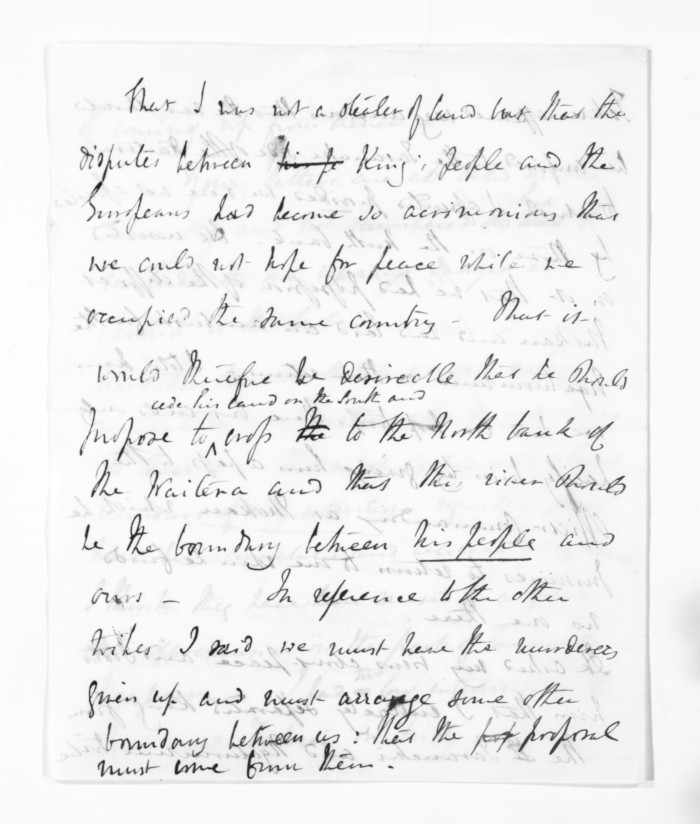 That I was not a stealer of land but that the
disputes between his pe King's people and the
Europeans had become so acrimonious that
we could not hope for peace while we
occupied the same country - That it
would therefore be desireable that he should
cede his land on the South and
propose to ^ cross the to the North bank of
the Waitera and that this river should
be the boundary between his people and
ours - In reference to the other
tribes I said we must have the murderers
given up and must arrange some other
boundary between us: that the proposal
must come from them.